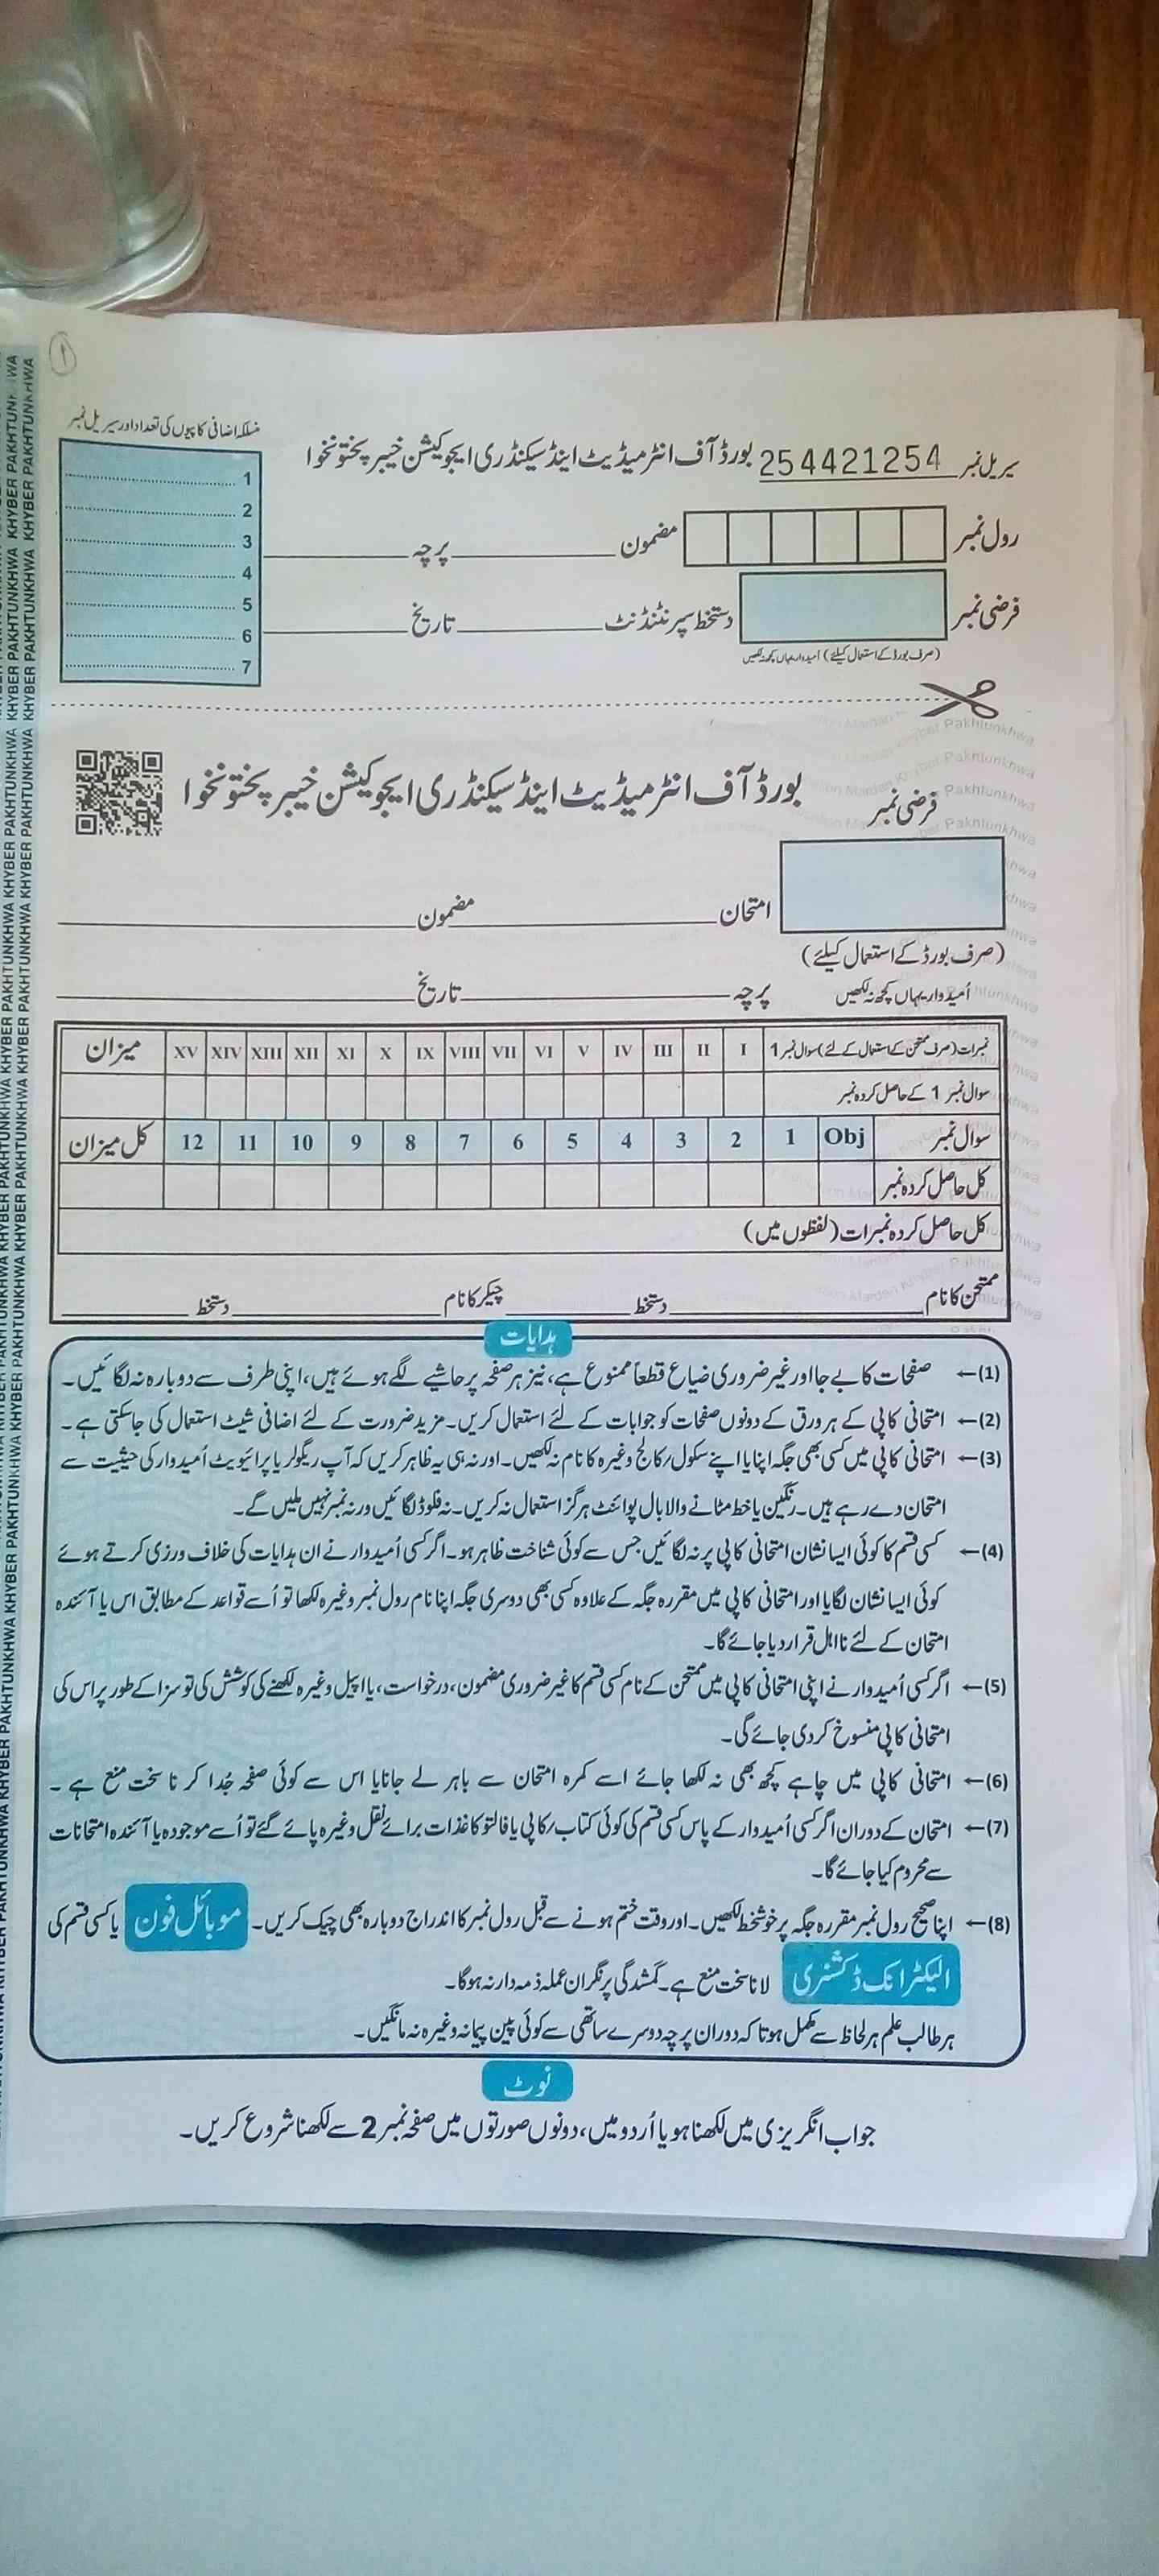 منسلکہ اضافی کاپیوں کی تعداد اور سیریل نمبر
1
2
3
4
5
6
7
سیریل نمبر 254421254 بورڈ آف انٹرمیڈیٹ اینڈ سیکنڈری ایجوکیشن خیبر پختونخوا
رول نمبر مضمون پرچہ
فرضی نمبر دستخط سپرنٹنڈنٹ تاریخ
(صرف بورڈ کے استعمال کیلئے) اُمیدوار یہاں کچھ نہ لکھیں
فرضی نمبر
بورڈ آف انٹرمیڈیٹ اینڈ سیکنڈری ایجوکیشن خیبر پختونخوا
امتحان مضمون
(صرف بورڈ کے استعمال کیلئے)
اُمیدوار یہاں کچھ نہ لکھیں
پرچہ تاریخ
نمبرات (صرف ممتحن کے استعمال کے لئے) سوال نمبر 1 I II III IV V VI VII VIII IX X XI XII XIII XIV XV میزان
سوال نمبر 1 کے حاصل کردہ نمبر
سوال نمبر Obj 1 2 3 4 5 6 7 8 9 10 11 12 کل میزان
کل حاصل کردہ نمبر
کل حاصل کردہ نمبرات (لفظوں میں)
ممتحن کا نام دستخط چیکر کا نام دستخط
ہدایات
(1)← صفحات کا بے جا اور غیر ضروری ضیاع قطعاً ممنوع ہے، نیز ہر صفحہ پر حاشیے لگے ہوئے ہیں، اپنی طرف سے دوبارہ نہ لگائیں۔
(2)← امتحانی کاپی کے ہر ورق کے دونوں صفحات کو جوابات کے لئے استعمال کریں۔ مزید ضرورت کے لئے اضافی شیٹ استعمال کی جاسکتی ہے۔
(3)← امتحانی کاپی میں کسی بھی جگہ اپنا یا اپنے سکول/کالج وغیرہ کا نام نہ لکھیں۔ اور نہ ہی یہ ظاہر کریں کہ آپ ریگولر یا پرائیویٹ اُمیدوار کی حیثیت سے
امتحان دے رہے ہیں۔ رنگین یا خط مٹانے والا بال پوائنٹ ہرگز استعمال نہ کریں۔ نہ فلوڈ لگائیں ورنہ نمبر نہیں ملیں گے۔
(4)← کسی قسم کا کوئی ایسا نشان امتحانی کاپی پر نہ لگائیں جس سے کوئی شناخت ظاہر ہو۔ اگر کسی اُمیدوار نے ان ہدایات کی خلاف ورزی کرتے ہوئے
کوئی ایسا نشان لگایا اور امتحانی کاپی میں مقررہ جگہ کے علاوہ کسی بھی دوسری جگہ اپنا نام رول نمبر وغیرہ لکھا تو اُسے قواعد کے مطابق اس یا آئندہ
امتحان کے لئے نااہل قرار دیا جائے گا۔
(5)← اگر کسی اُمیدوار نے اپنی امتحانی کاپی میں ممتحن کے نام کسی قسم کا غیر ضروری مضمون، درخواست، یا اپیل وغیرہ لکھنے کی کوشش کی تو سزا کے طور پر اس کی
امتحانی کاپی منسوخ کر دی جائے گی۔
(6)← امتحانی کاپی میں چاہے کچھ بھی نہ لکھا جائے اسے کمرہ امتحان سے باہر لے جانا یا اس سے کوئی صفحہ جُدا کرنا سخت منع ہے۔
(7)← امتحان کے دوران اگر کسی اُمیدوار کے پاس کسی قسم کی کوئی کتاب/کاپی یا فالتو کاغذات برائے نقل وغیرہ پائے گئے تو اُسے موجودہ یا آئندہ امتحانات
سے محروم کیا جائے گا۔
(8)← اپنا صحیح رول نمبر مقررہ جگہ پر خوشخط لکھیں۔ اور وقت ختم ہونے سے قبل رول نمبر کا اندراج دوبارہ بھی چیک کریں۔ موبائل فون یا کسی قسم کی
الیکٹرانک ڈکشنری لانا سخت منع ہے۔ گمشدگی پر نگران عملہ ذمہ دار نہ ہوگا۔
ہر طالب علم ہر لحاظ سے مکمل ہو تا کہ دوران پرچہ دوسرے ساتھی سے کوئی پین پیمانہ وغیرہ نہ مانگیں۔
نوٹ
جواب انگریزی میں لکھنا ہو یا اُردو میں، دونوں صورتوں میں صفحہ نمبر 2 سے لکھنا شروع کریں۔
KHYBER PAKHTUNKHWA KHYBER PAKHTUNKHWA KHYBER PAKHTUNKHWA